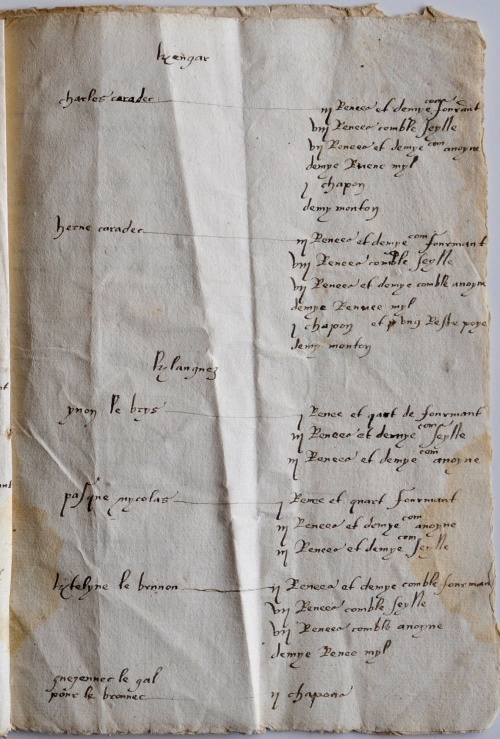 charles caradec
iij Renees et demye com fourmant
viij Renees comble seylle
vij Renees et demye com anoyne
demye Renee myl
j chapon
demy monton
herue caradec
iij Renees et demye com fourmant
viij Renees comble seylle
vij Renees et demye comble anoyne
demye Renee myl
j chapon et vng Reste poye
demy monton
k/languez
ynon le brys
j Renee et quart de fourmant
iij Renees et demye com seylle
iij Renees et demye com anoyne
pasque nycolas
j Renee et quart fourmant
iij Renees et demye com anoyne
iij Renees et demye com seylle
le bronnon
ij Renees et demye comble fourmant
vij Renees comble seylle
vij Renees comble anoyne
demye Renee myl
le gal
le bronnec
ij chapons